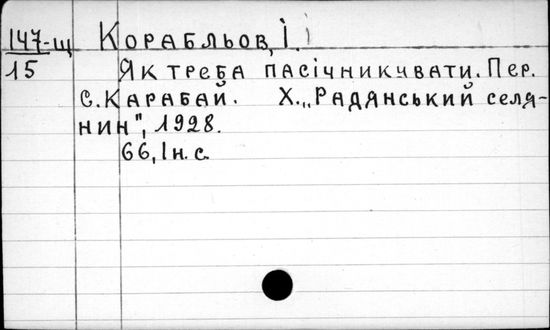 147-щ Корабльов, І.
15 Як треба пасічникувати. Пер.
Є. Карабай. Х. „Радянський селя-
нин", 1928.
66, Ін. с.